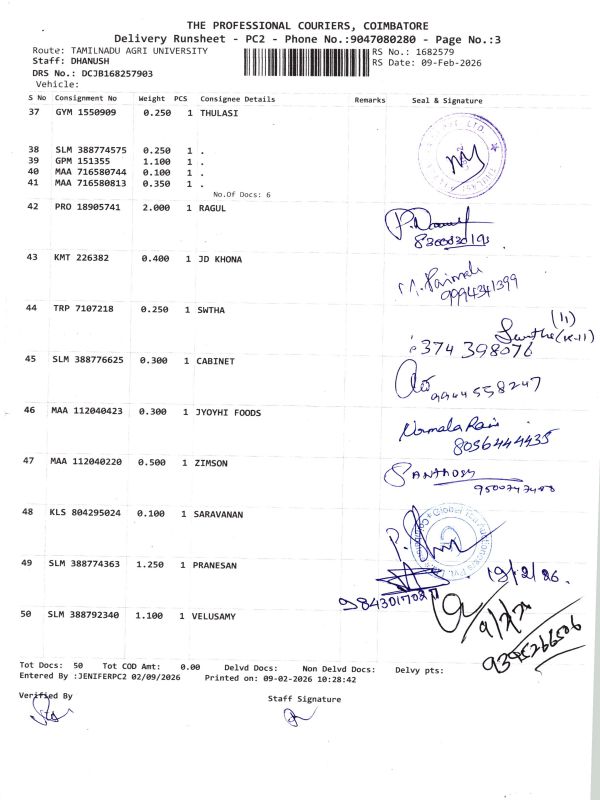 THE PROFESSIONAL COURIERS, COIMBATORE
Delivery Runsheet - PC2 - Phone No.:9047080280 - Page No.:3
Route: TAMILNADU AGRI UNIVERSITY
RS No.: 1682579
Staff: DHANUSH
RS Date: 09-Feb-2026
DRS No.: DCJB168257903
Vehicle:
S No Consignment No Weight PCS Consignee Details Remarks Seal & Signature
37 GYM 1550909 0.250 1 THULASI
38 SLM 388774575 0.250 1 .
39 GPM 151355 1.100 1 .
40 MAA 716580744 0.100 1 .
41 MAA 716580813 0.350 1 .
No.Of Docs: 6
42 PRO 18905741 2.000 1 RAGUL
43 KMT 226382 0.400 1 JD KHONA
9994341399
44 TRP 7107218 0.250 1 SWTHA
(11)
374 398076
45 SLM 388776625 0.300 1 CABINET
9944558247
46 MAA 112040423 0.300 1 JYOYHI FOODS
Nirmala Rani
8056444435
47 MAA 112040220 0.500 1 ZIMSON
SANTHOSH
48 KLS 804295024 0.100 1 SARAVANAN
49 SLM 388774363 1.250 1 PRANESAN
50 SLM 388792340 1.100 1 VELUSAMY
9395266506
Tot Docs: 50 Tot COD Amt: 0.00 Delvd Docs: Non Delvd Docs: Delvy pts:
Entered By :JENIFERPC2 02/09/2026 Printed on: 09-02-2026 10:28:42
Verified By Staff Signature